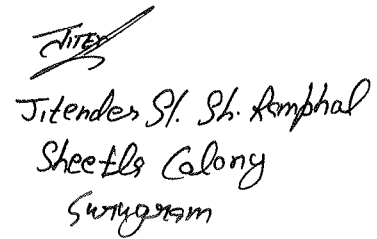 Jiten
Jitender S/. Sh. Ramphal
Sheetla Colony
Gurugram